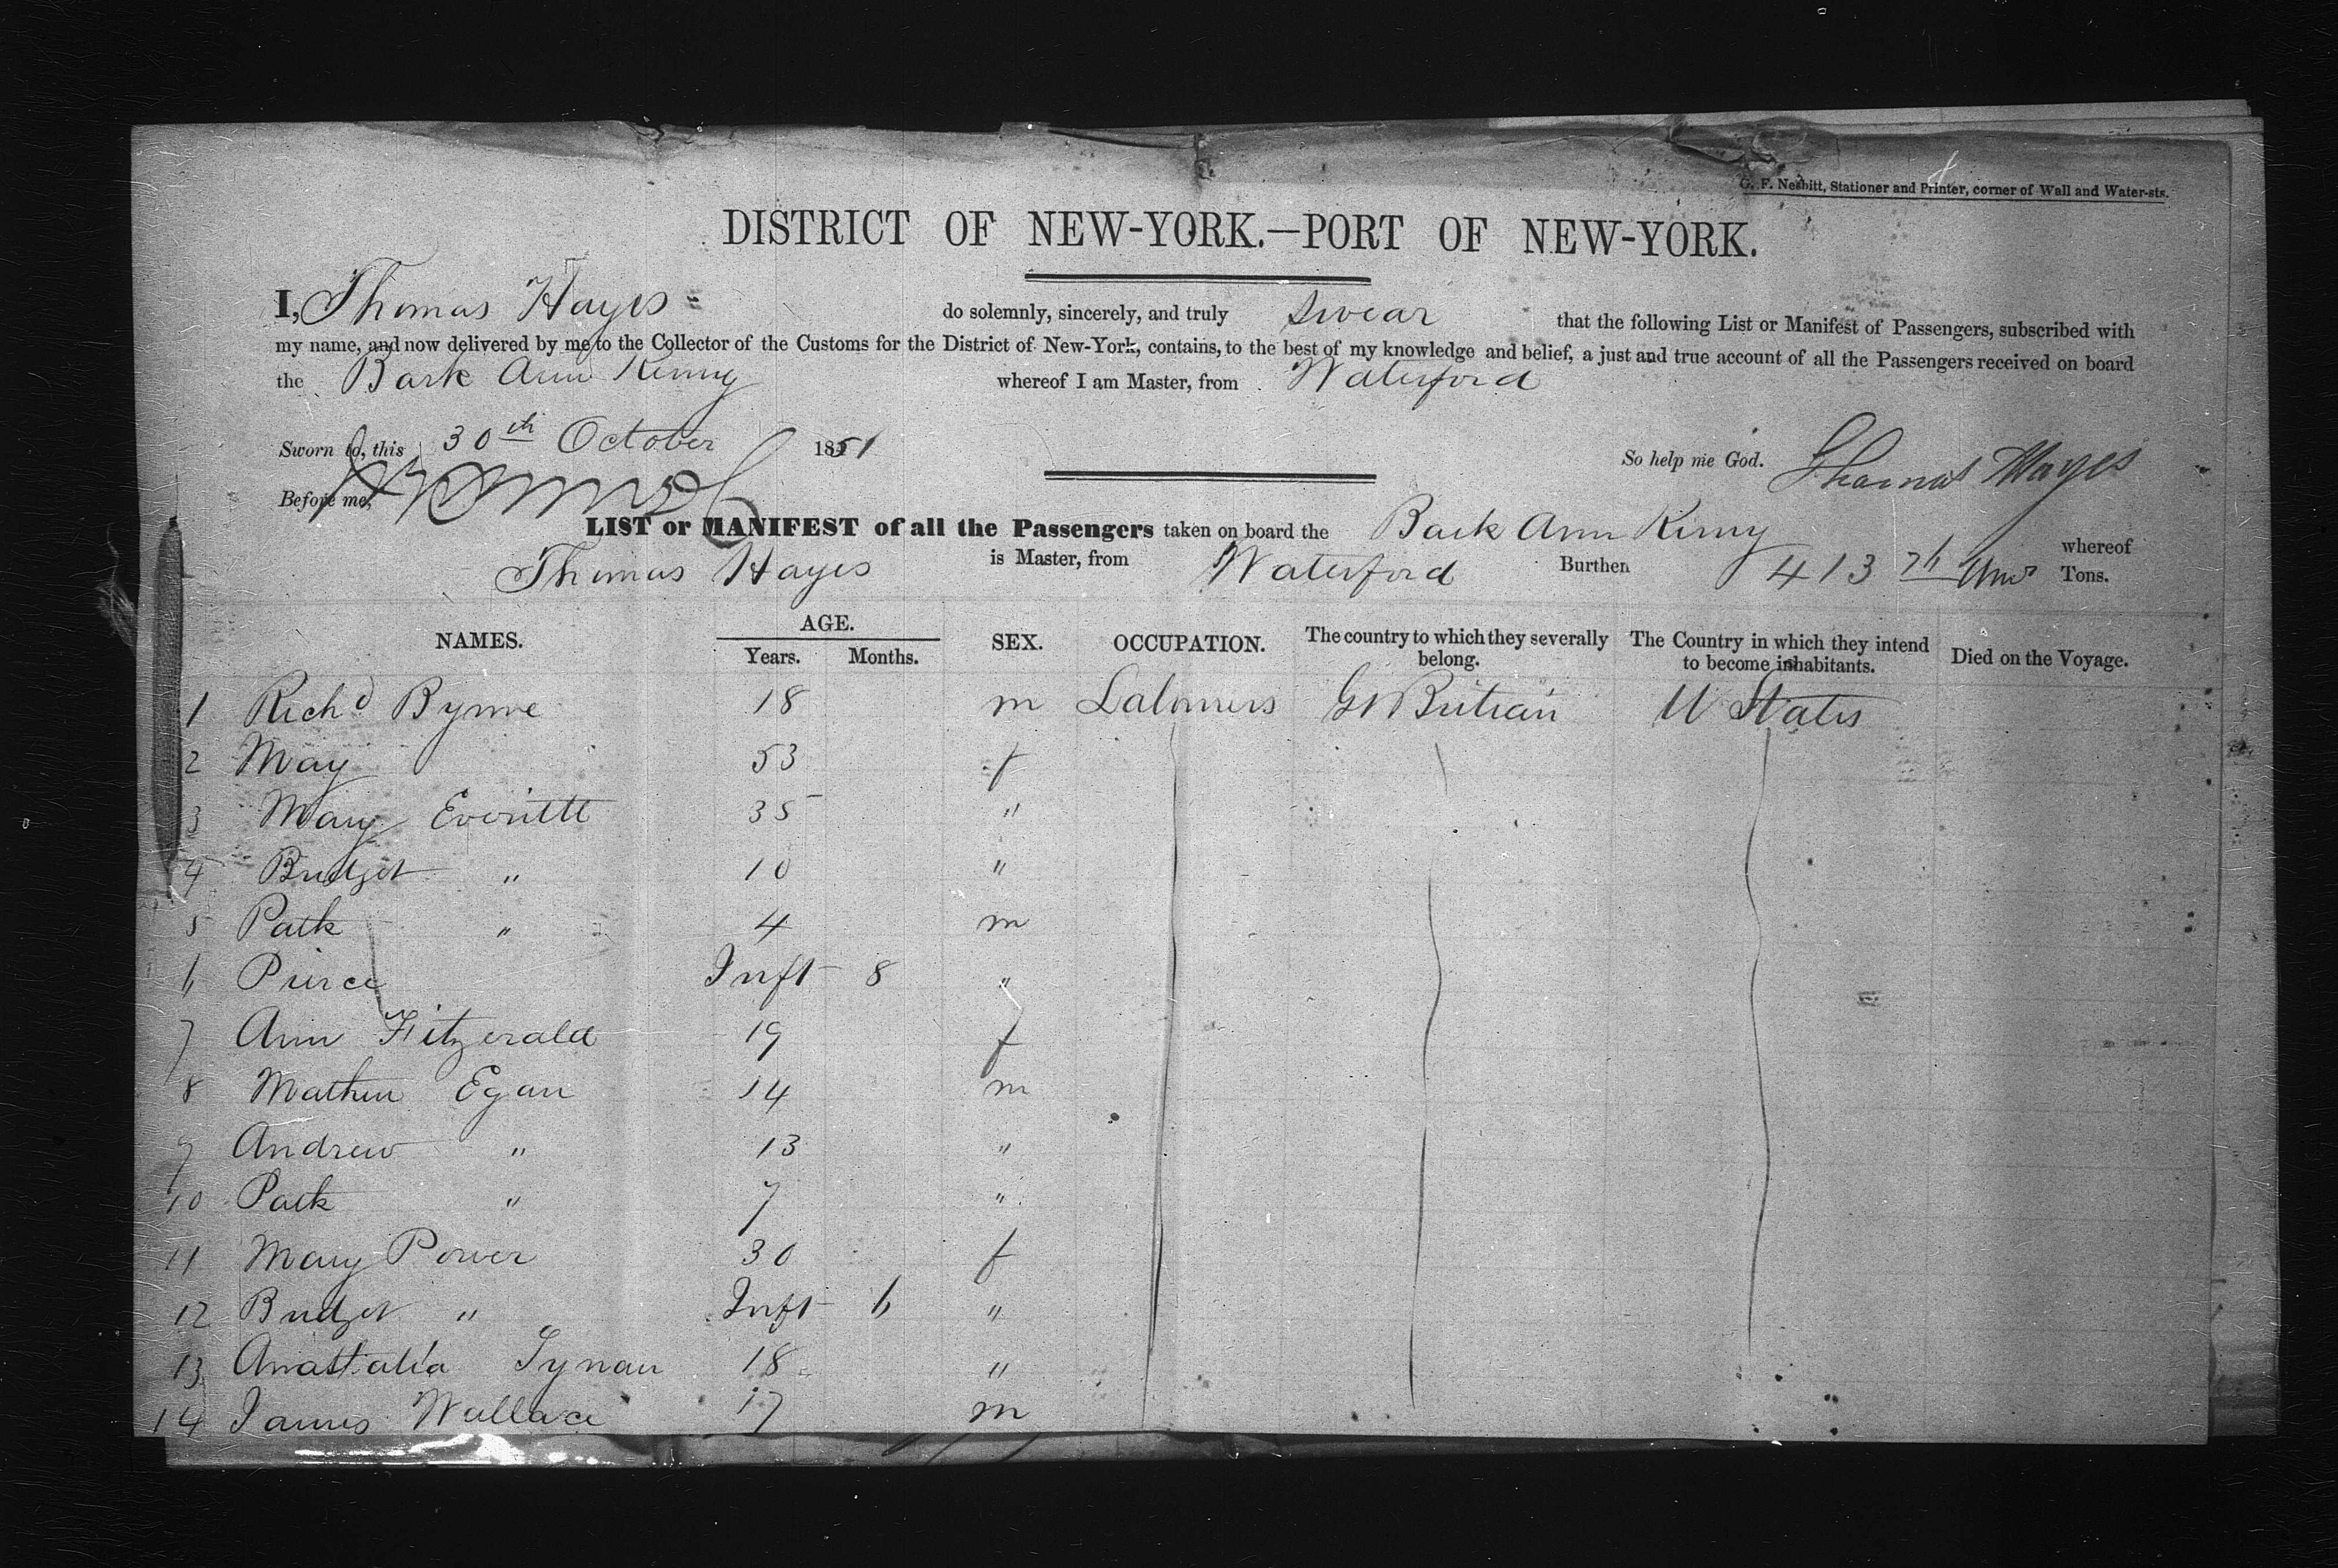 G. F. Nesbitt, Stationer and Printer, corner of Wall and Water-sts.
DISTRICT OF NEW-YORK.—PORT OF NEW-YORK.
I, Thomas Hayes do solemnly, sincerely, and truly swear that the following List or Manifest of Passengers, subscribed with
my name, and now delivered by me to the Collector of the Customs for the District of New-York, contains, to the best of my knowledge and belief, a just and true account of all the Passengers received on board
the Bark Ann Kenny whereof I am Master, from Waterford
Sworn to, this 30th October 1851
So help me God. Thomas Hayes
Before me,
LIST or MANIFEST of all the Passengers taken on board the Bark Ann Kenny whereof
Thomas Hayes is Master, from Waterford Burthen 413 Tons.
NAMES. AGE. SEX. OCCUPATION. The country to which they severally belong. The Country in which they intend to become inhabitants. Died on the Voyage.
Years. Months.
1 Richd Byrne 18 m Labourers Gt Britian U States
2 May 53 f
3 Mary Everitte 35 "
4 Bridget " 10 "
5 Patk " 4 m
6 Pierce Inft 8 "
7 Ann Fitzerald 19 f
8 Mathew Egan 14 m
9 Andrew " 13 "
10 Patk " 7 "
11 Mary Power 30 f
12 Bridget " Inft 6 "
13 Anastatia Tynan 18 "
14 James Wallace 17 m